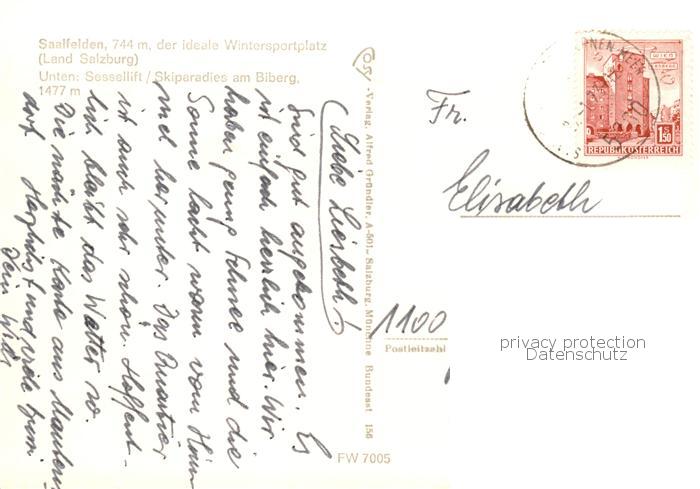 Saalfelden, 744 m, der ideale Wintersportplatz
(Land Salzburg)
Unten: Sessellift / Skiparadies am Biberg,
1477 m
Liebe Liesbeth!
Sind gut angekommen. Es
ist einfach herrlich hier. Wir
haben genug Schnee und die
Sonne lacht vom Him
mel herunter. Das Quartier
ist auch sehr schön. Hoffent-
lich bleibt das Wetter so.
Die nächste Karte aus
dorf. Herzlichst
Dein Willi
Verlag Alfred Gründler, A-501- Salzburg, Münchne Bundesst 156
FW 7005
Fr.
Elisabeth
1100
Postleitzahl
WIEN
1.50
REPUBLIK ÖSTERREICH
privacy protection
Datenschutz